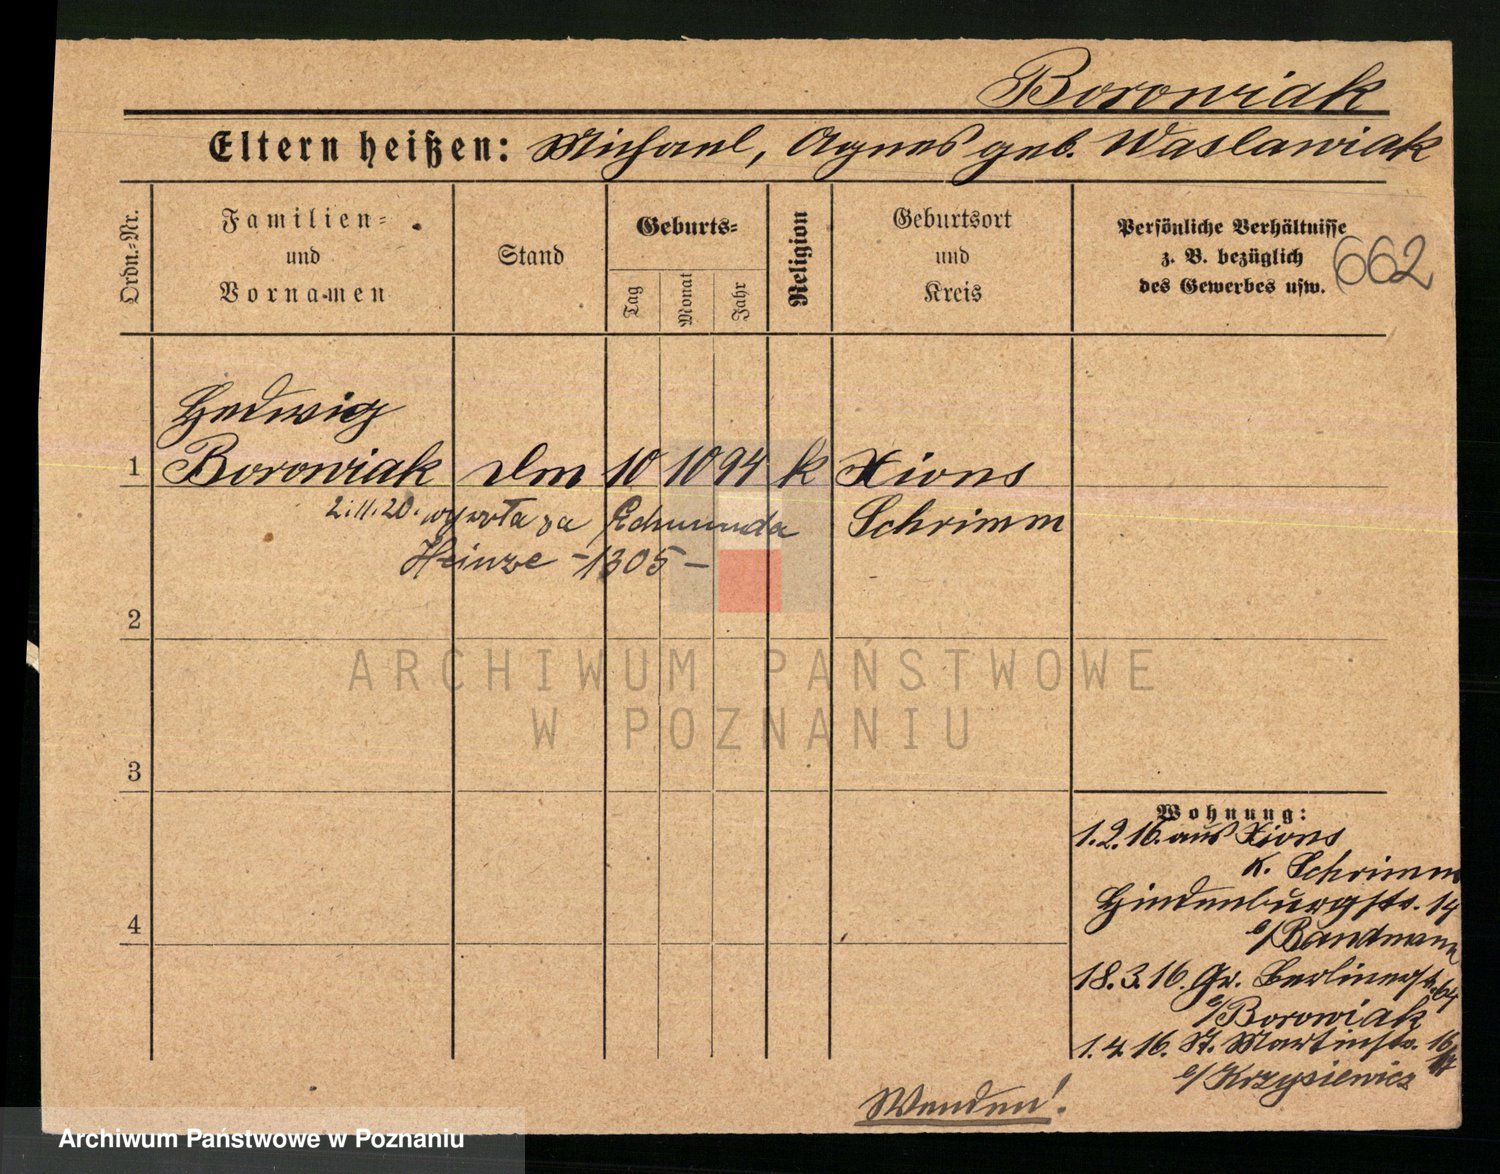 Borowiak
Eltern heißen: Michael, Agnes geb. Waslawiak
Ordn.=Nr.
Familien=
und
Vornamen
Stand
Geburts=
Tag
Monat
Jahr
Religion
Geburtsort
und
Kreis
Persönliche Verhältnisse
z. B. bezüglich
des Gewerbes usw.
662
Hedwig
1 Borowiak 10 10 94 k Xions
2.11.20. wyszła za Edmunda Schrimm
Heinze -1305-
2
ARCHIWUM PAŃSTWOWE
W POZNANIU
3
Wohnung:
1.2.16. aus Xions
K. Schrimm
Hindenburgstr. 14
b/Bandmann
4
18.3.16. Gr. Berlinerstr. 64
b/Borowiak
1.4.16. St. Martinstr. 16/17
b/Krzysiewicz
Wenden!
Archiwum Państwowe w Poznaniu